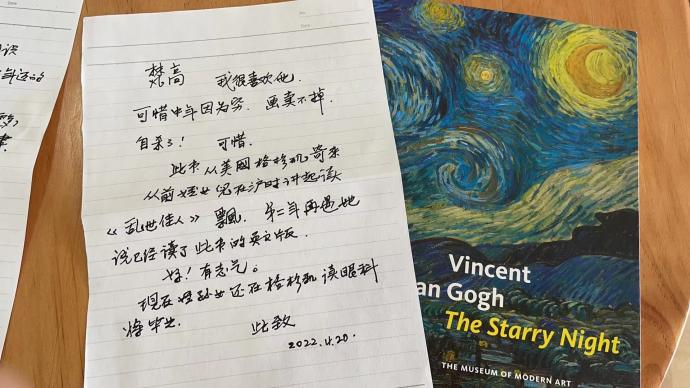 梵高 我很喜欢他.
可惜中年因为穷. 画卖不掉.
自杀了! 可惜.
此书从美国洛杉矶寄来
从前姪女儿在沪时讲起读
《乱世佳人》飘. 第二年再遇她
说已经读了此书的英文版.
好! 有志气。
现在姪孙女还在洛杉矶读眼科
将毕业. 此致
2022.4.20.
Vincent
an Gogh
The Starry Night
THE MUSEUM OF MODERN ART